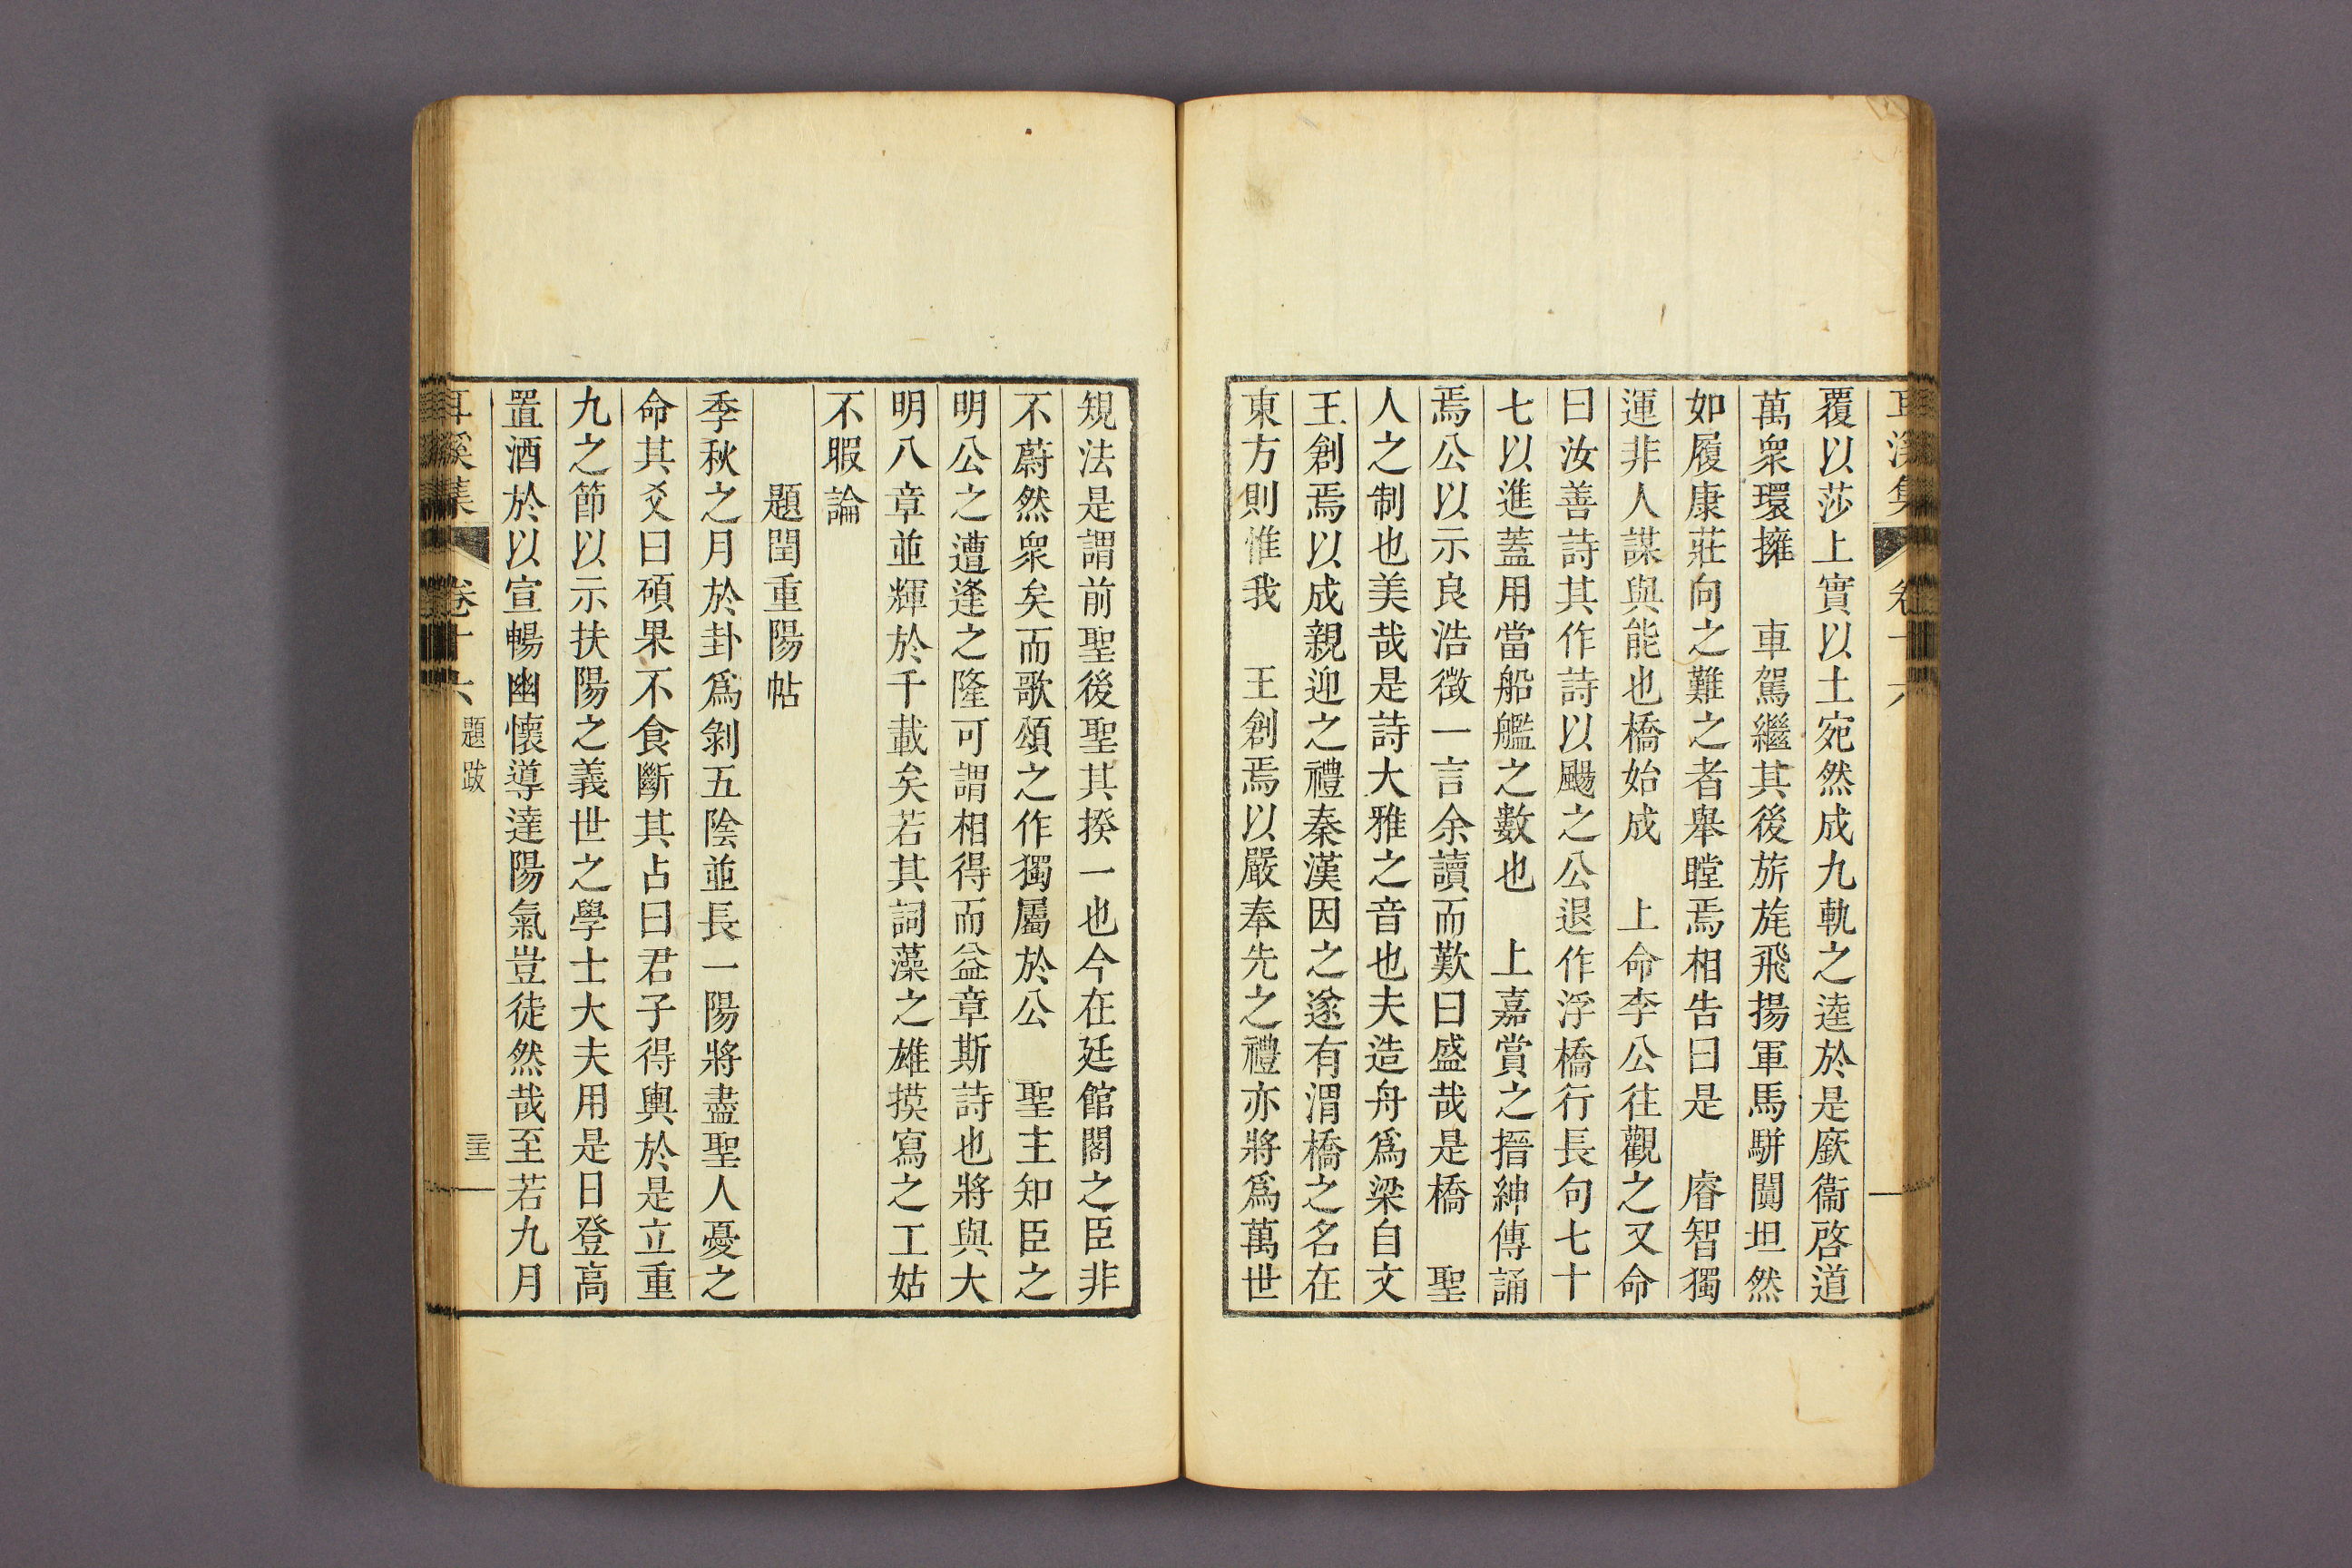 耳溪集 卷十六
覆以莎上實以土宛然成九軌之逵於是厥衞啓道
萬衆環擁 車駕繼其後旂旄飛揚軍馬駢闐坦然
如履康莊向之難之者舉瞠焉相告曰是 睿智獨
運非人謀與能也橋始成 上命李公往觀之又命
曰汝善詩其作詩以颺之公退作浮橋行長句七十
七以進蓋用當船艦之數也 上嘉賞之搢紳傳誦
焉公以示良浩徵一言余讀而歎曰盛哉是橋 聖
人之制也美哉是詩大雅之音也夫造舟爲梁自文
王創焉以成親迎之禮秦漢因之遂有渭橋之名在
東方則惟我 王創焉以嚴奉先之禮亦將爲萬世
規法是謂前聖後聖其揆一也今在廷館閣之臣非
不蔚然衆矣而歌頌之作獨屬於公 聖主知臣之
明公之遭逢之隆可謂相得而益章斯詩也將與大
明八章並輝於千載矣若其詞藻之雄摸寫之工姑
不暇論
題閏重陽帖
季秋之月於卦爲剝五陰並長一陽將盡聖人憂之
命其爻曰碩果不食斷其占曰君子得輿於是立重
九之節以示扶陽之義世之學士大夫用是日登高
置酒於以宣暢幽懷導達陽氣豈徒然哉至若九月
耳溪集 卷十六 題跋